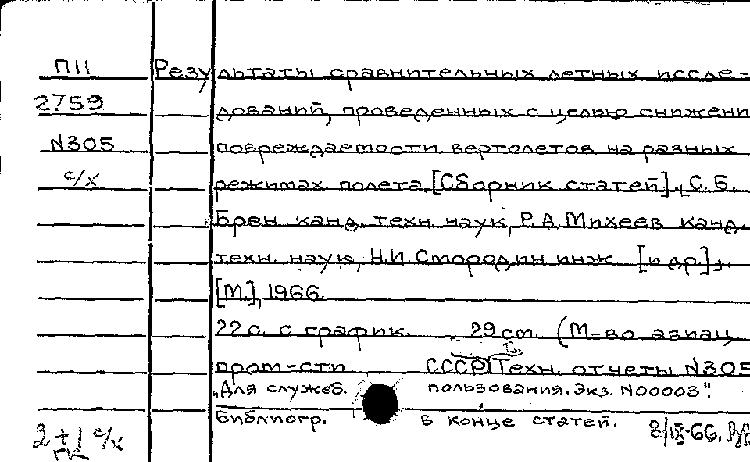 П11 Результаты сравнительных летных иссле-
2759 дований, проведенных с целью снижени
N305 повреждаемости вертолетов на разных
с/х режимах полета. [Сборник статей]. С. Б.
Брен канд. техн. наук, Р. А. Михеев канд.
техн. наук, Н. И. Смородин инж. [и др.].
[М.], 1966.
22 с. с график. 29 см. (М-во авиац.
пром-сти СССР. Техн. отчеты N305
"Для служеб. пользования. Экз. N00003".
Библиогр. в конце статей. 8/IX-66.
2+1 с/х